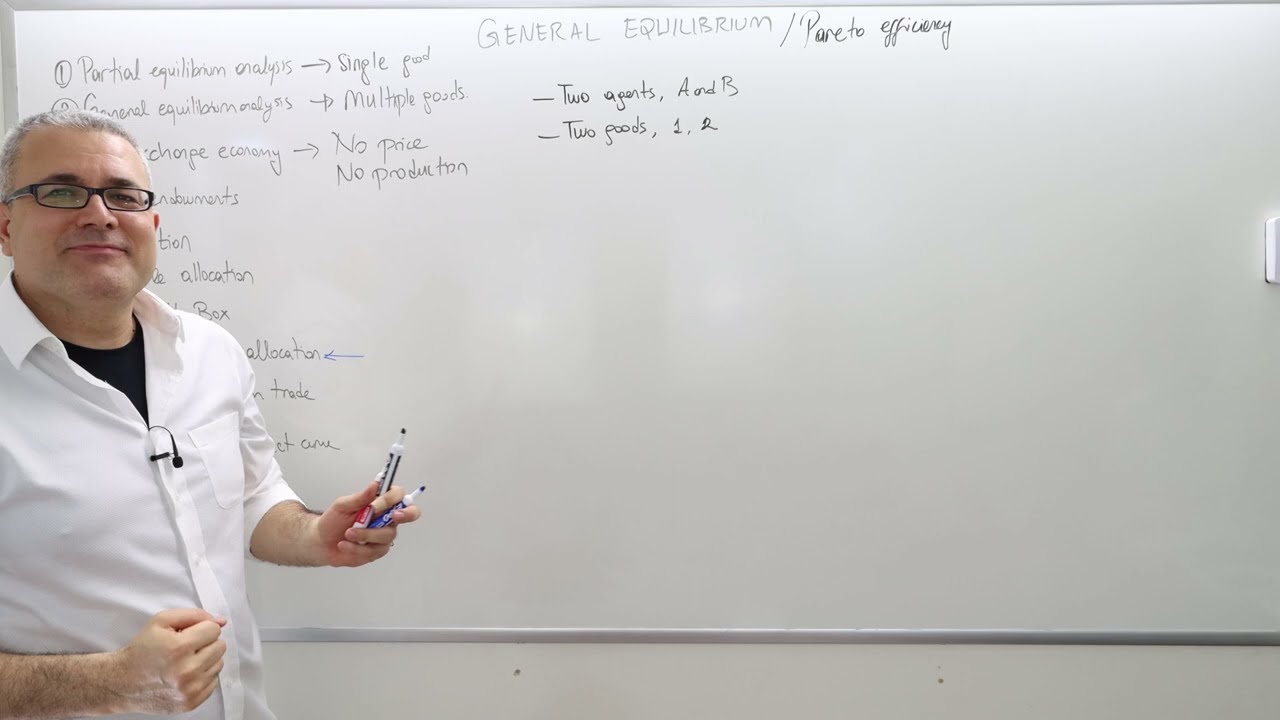 GENERAL EQUILIBRIUM / Pareto efficiency
① Partial equilibrium analysis → Single good
② General equilibrium analysis → Multiple goods.
economy → No price
No production
allocation
Box
allocation ←
trade
— Two agents, A and B
— Two goods, 1, 2